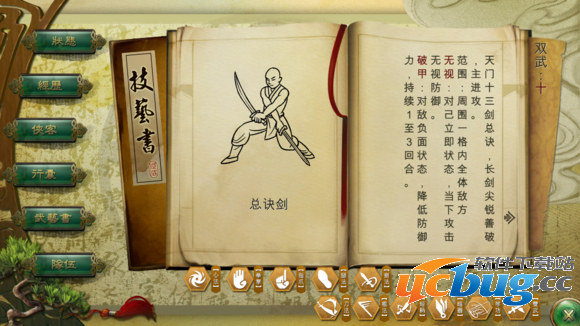 狀態
經歷
俠客
行囊
武藝書
隊伍
技藝書
总诀剑
双武：十
天门十三剑总诀，长剑尖锐善破
，主进攻。
范围：周围一格内全体敌方
无视：对己立即状态，当下攻击
无视防御。
破甲：对敌负面状态，降低防御
力，持续1至3回合。
软件下载站
ucbug.cc